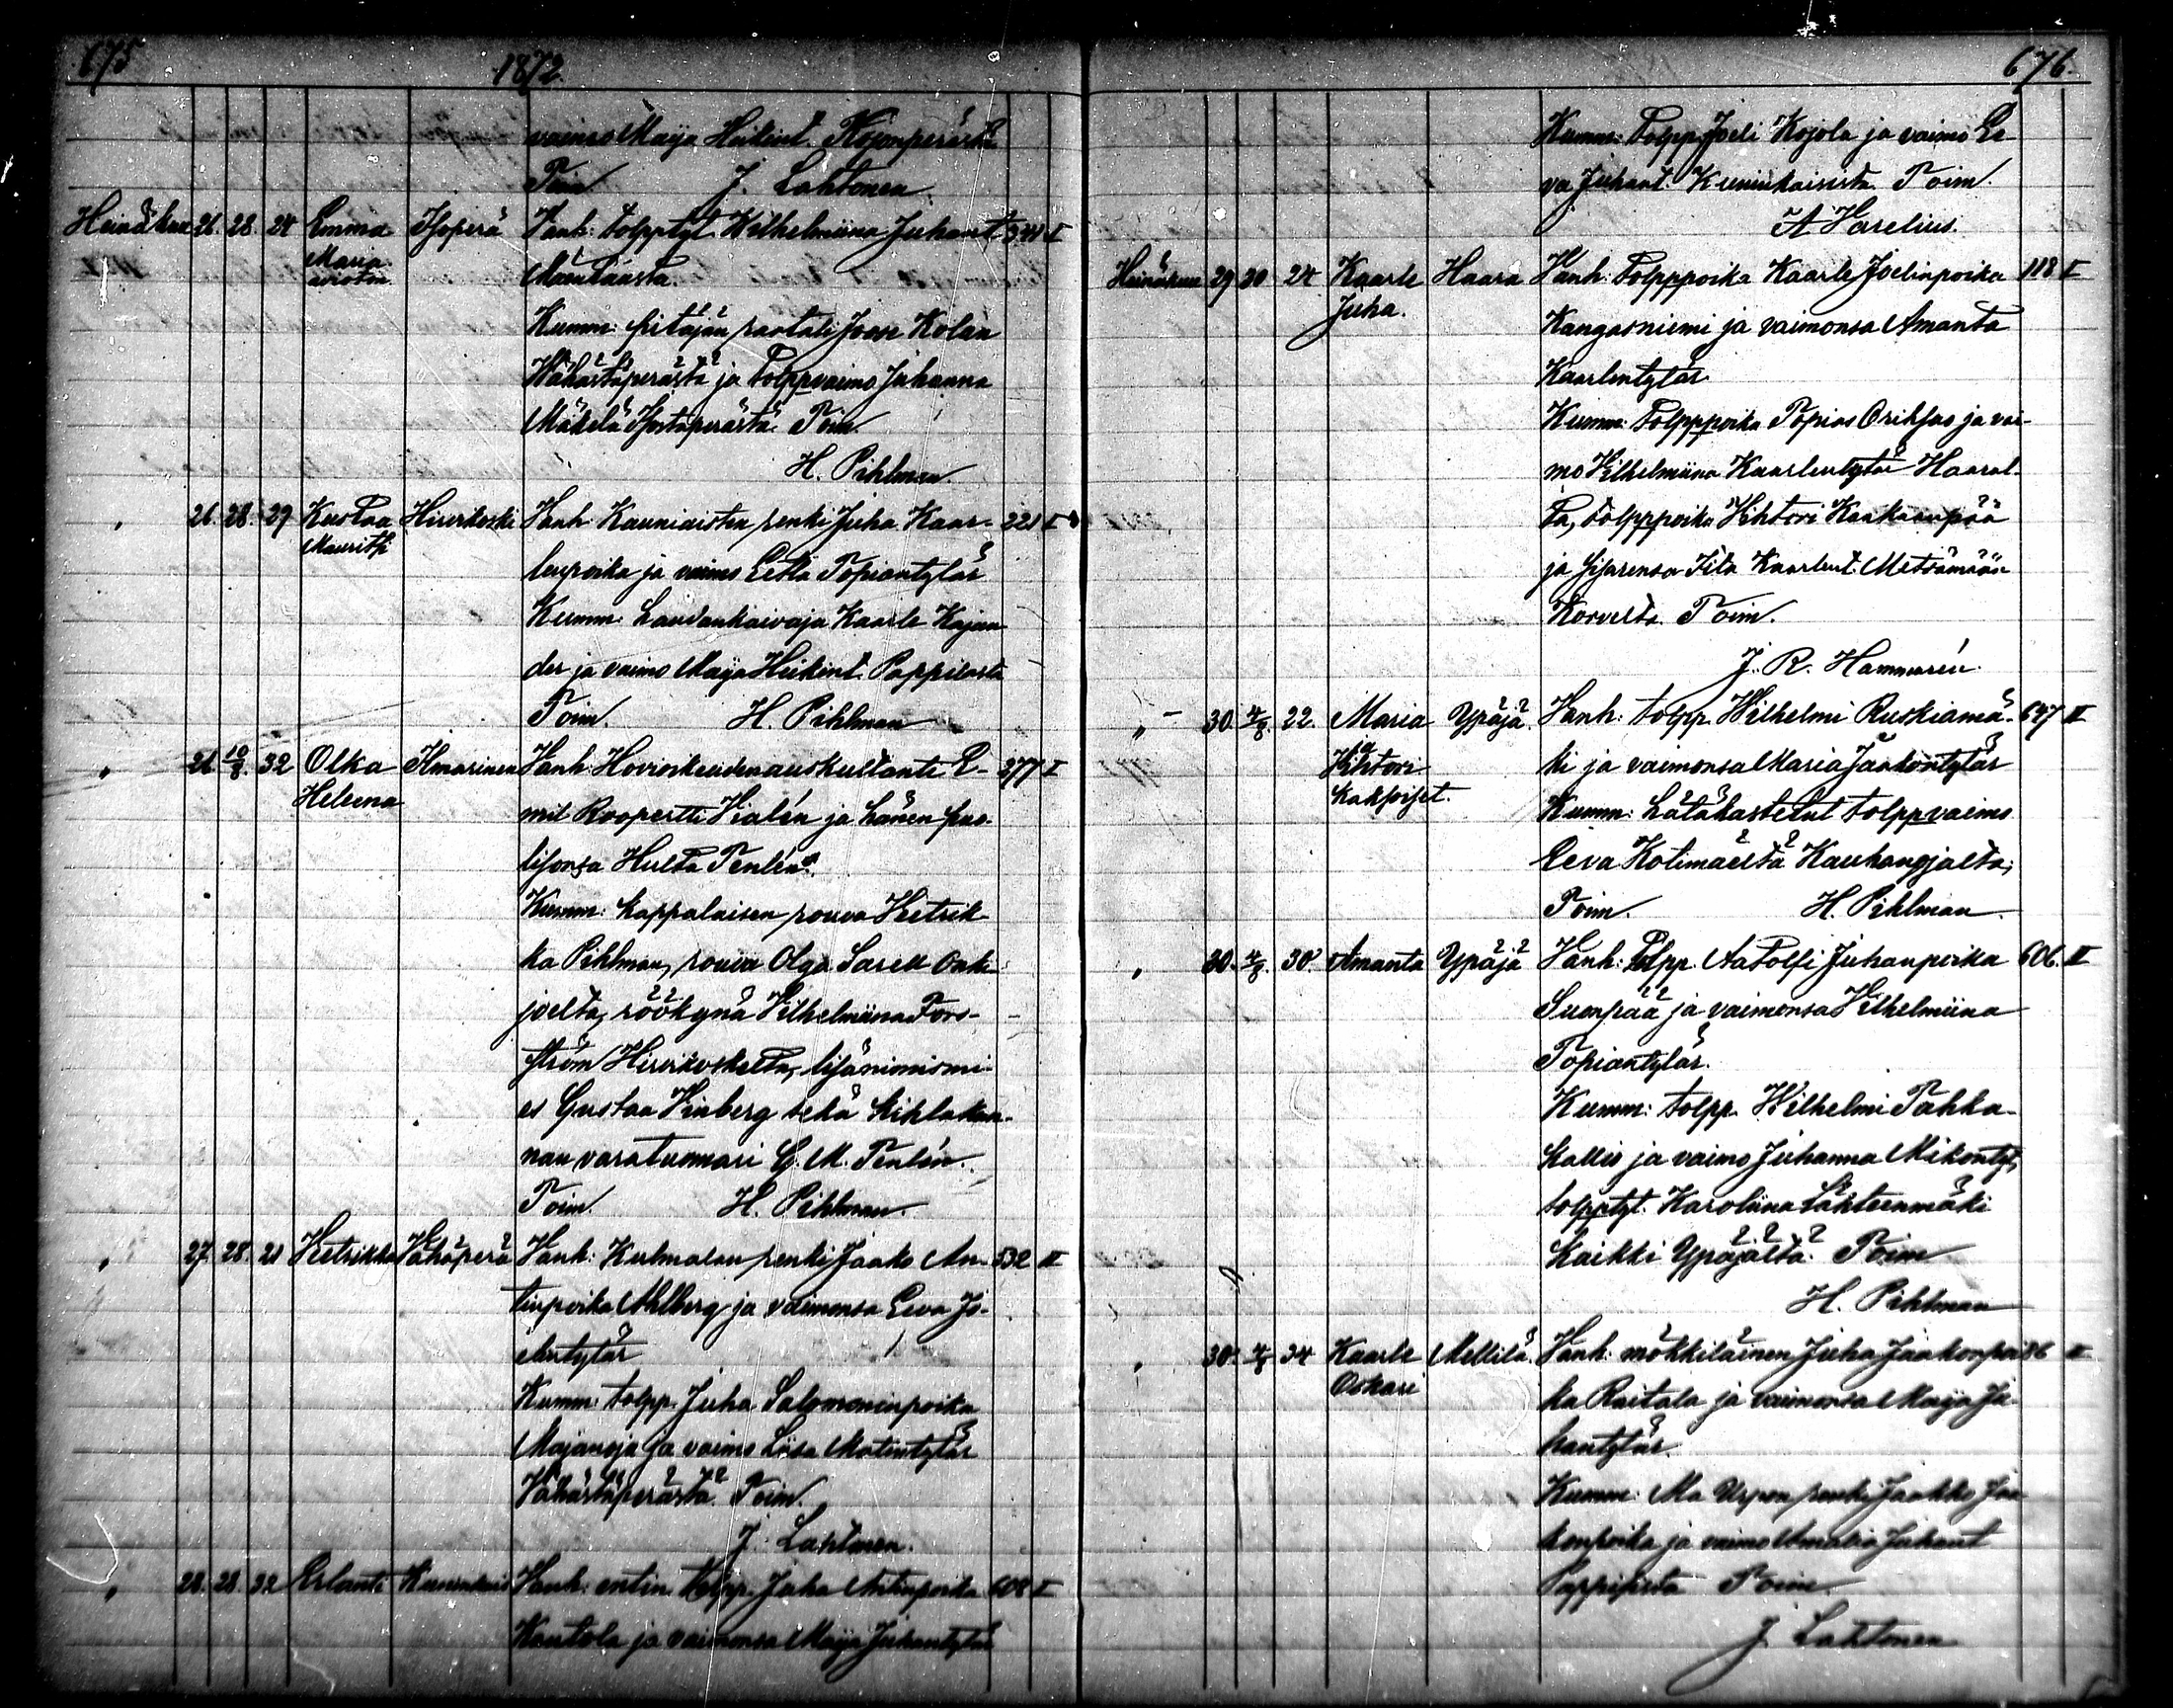 675
1872.
vaimo Maija Heikint. Kojonperästä
Toim. J. Lahtonen.
Heinäkuu 26. 28. 24 Emma Isoperä Vanh: tolpptyt Wilhelmiina Juhant. 541 I
Maria
avioton
Kumm: pitäjän raatali Joose Kolan
Wähästäperästä ja tolppvaimo Juhanna
Mäkelä Isostaperästä Toim.
H. Pihlman.
" 26. 28. 29 Kustaa Hirvikoski Vanh: Kauniaisten renki Juha Kaar- 221 I
Mauritsi
lenpoika ja vaimo Eetla Topiantytär
Kumm: haudankaivaja Kaarle Kajan
der ja vaimo Maija Heikint. Pappilasta
Toim. H. Pihlman
" 26. 10/8. 32 Olka Ilmarinen Vanh: Hovioikeudenauskultantti E- 277 I
Heleena
mil Roopertti Vialén ja hänen puo-
lisonsa Hulta Tenlén.
Kumm: kappalaisen rouva Hetrik-
ka Pihlman, rouva Olga Sarell
joelta, röökynä Vilhelmiina Fors-
ström Hirvikoskelta, lisänimismi-
es Gustaa Vinberg sekä kihlakun-
nan varatuomari G. M. Tenlén.
Toim. H. Pihlman.
" 27. 28. 21 Hetrikka Vähäperä Vanh: Kulmalan renki Jaako An- 532 II
tinpoika Ahlberg ja vaimonsa Eeva Jo-
elintytär
Kumm: tolpp. Juha Salomoninpoika
Majanoja ja vaimo Liisa Matintytär
Vähästäperästä. Toim.
J. Lahtonen.
" 28. 28. 32 Erlanti Vanh: entin. tolpp. Juha Antinpoika 608 I
Kantola ja vaimonsa Maija Juhantytär
676.
Kumm: Tolpp. Joeli Kojola ja vaimo Ee
va Juhant. Kuninkaisista. Toim.
A Harelius.
Heinäkuu 29 30 24 Kaarle Haara Vanh: Tolpppoika Kaarle Joelinpoika 118 I
Juha.
Kangasniemi ja vaimonsa Amanta
Kaarlentytär
Kumm: tolpppoika Topias Orihsas ja vai-
mo Vilhelmiina Kaarlentytär Haaral-
ta, tolpppoika Vihtori Kankaanpää
ja sisarensa Iita Kaarlent. Metsämään
Korvelta. Toim.
J. R. Hammarén.
" 30. 4/8. 22. Maria Ypäjä. Vanh: tolpp. Wilhelmi Ruskiamä- 647 II
ja
Vihtori
kaksoiset.
ki ja vaimonsa Maria Jaakontytär
Kumm: hätäkastetut tolppvaimo
Eeva Kotimäeltä Kauhanojalta,
Toim. H. Pihlman.
" 30. 4/8. 30. Amanta Ypäjä Vanh: Tolpp. Aatolfi Juhanpoika 606. II
Suonpää ja vaimonsa Vilhelmiina
Topiantytär.
Kumm: tolpp. Wilhelmi Tahka-
kallio ja vaimo Juhanna Mikontyt,
tolpptyt. Karoliina Lähteenmäki
Kaikki Ypäjältä. Toim
H. Pihlman
" 30. 4/8 34 Kaarle Mellilä. Vanh: mökkiläinen Juha Jaakonpoi 86 II
Oskari
ka Raitala ja vaimonsa Maija Ju-
hantytär.
Kumm: Ma Urpon renki Jaakko Jaa
konpoika ja vaimo Amalia Juhant
Toim
J. Lahtonen